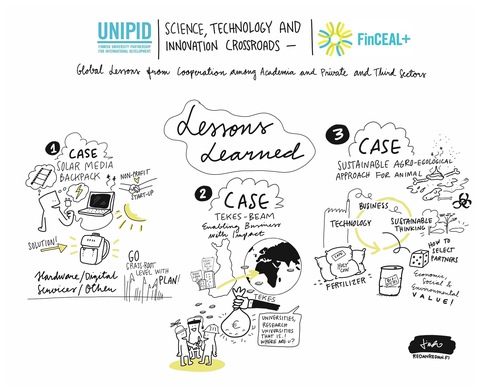 UNIPID
FINNISH UNIVERSITY PARTNERSHIP
FOR INTERNATIONAL DEVELOPMENT
SCIENCE, TECHNOLOGY AND
INNOVATION CROSSROADS —
FinCEAL+
Global Lessons from Cooperation among Academia and Private and Third Sectors
Lessons
Learned
1
CASE
SOLAR MEDIA
BACKPACK
NON-PROFIT
START-UP
SOLUTION!
GO
GRASS-ROOT
LEVEL WITH
PLAN!
Hardware/Digital
Services/Other
2
CASE
TEKES-BEAM
Enabling Business
with Impact
TEKES
€
UNIVERSITIES,
RESEARCH
UNIVERSITIES
THAT IS!
WHERE ARE U?
3
CASE
SUSTAINABLE AGRO-ECOLOGICAL
APPROACH FOR ANIMAL
BUSINESS
TECHNOLOGY
SUSTAINABLE
THINKING
HOW TO
SELECT
PARTNERS
FERTILIZER
Economic,
Social &
Environmental
VALUE!
REDANREDAN.FI